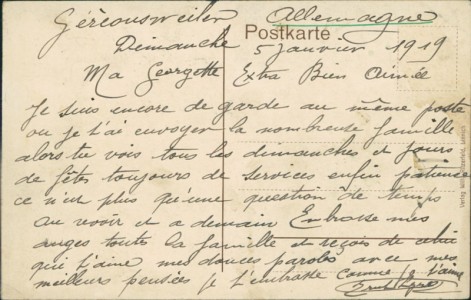 Géréonsweiler Allemagne
Postkarte
Dimanche 5 Janvier 1919
Ma Georgette Extra Bien Aimée
Je suis encore de garde au même poste
ou je t'ai envoyer la nombreuse famille
alors tu vois tous les dimanches et jours
de fêtes toujours de services enfin patience
ce n'est plus qu'une question de temps
au revoir et a demain Embrasse mes
anges toute la famille et reçois de celui
qui t'aime mes douces paroles avec mes
meilleurs pensées je t'embrasse comme je t'aime